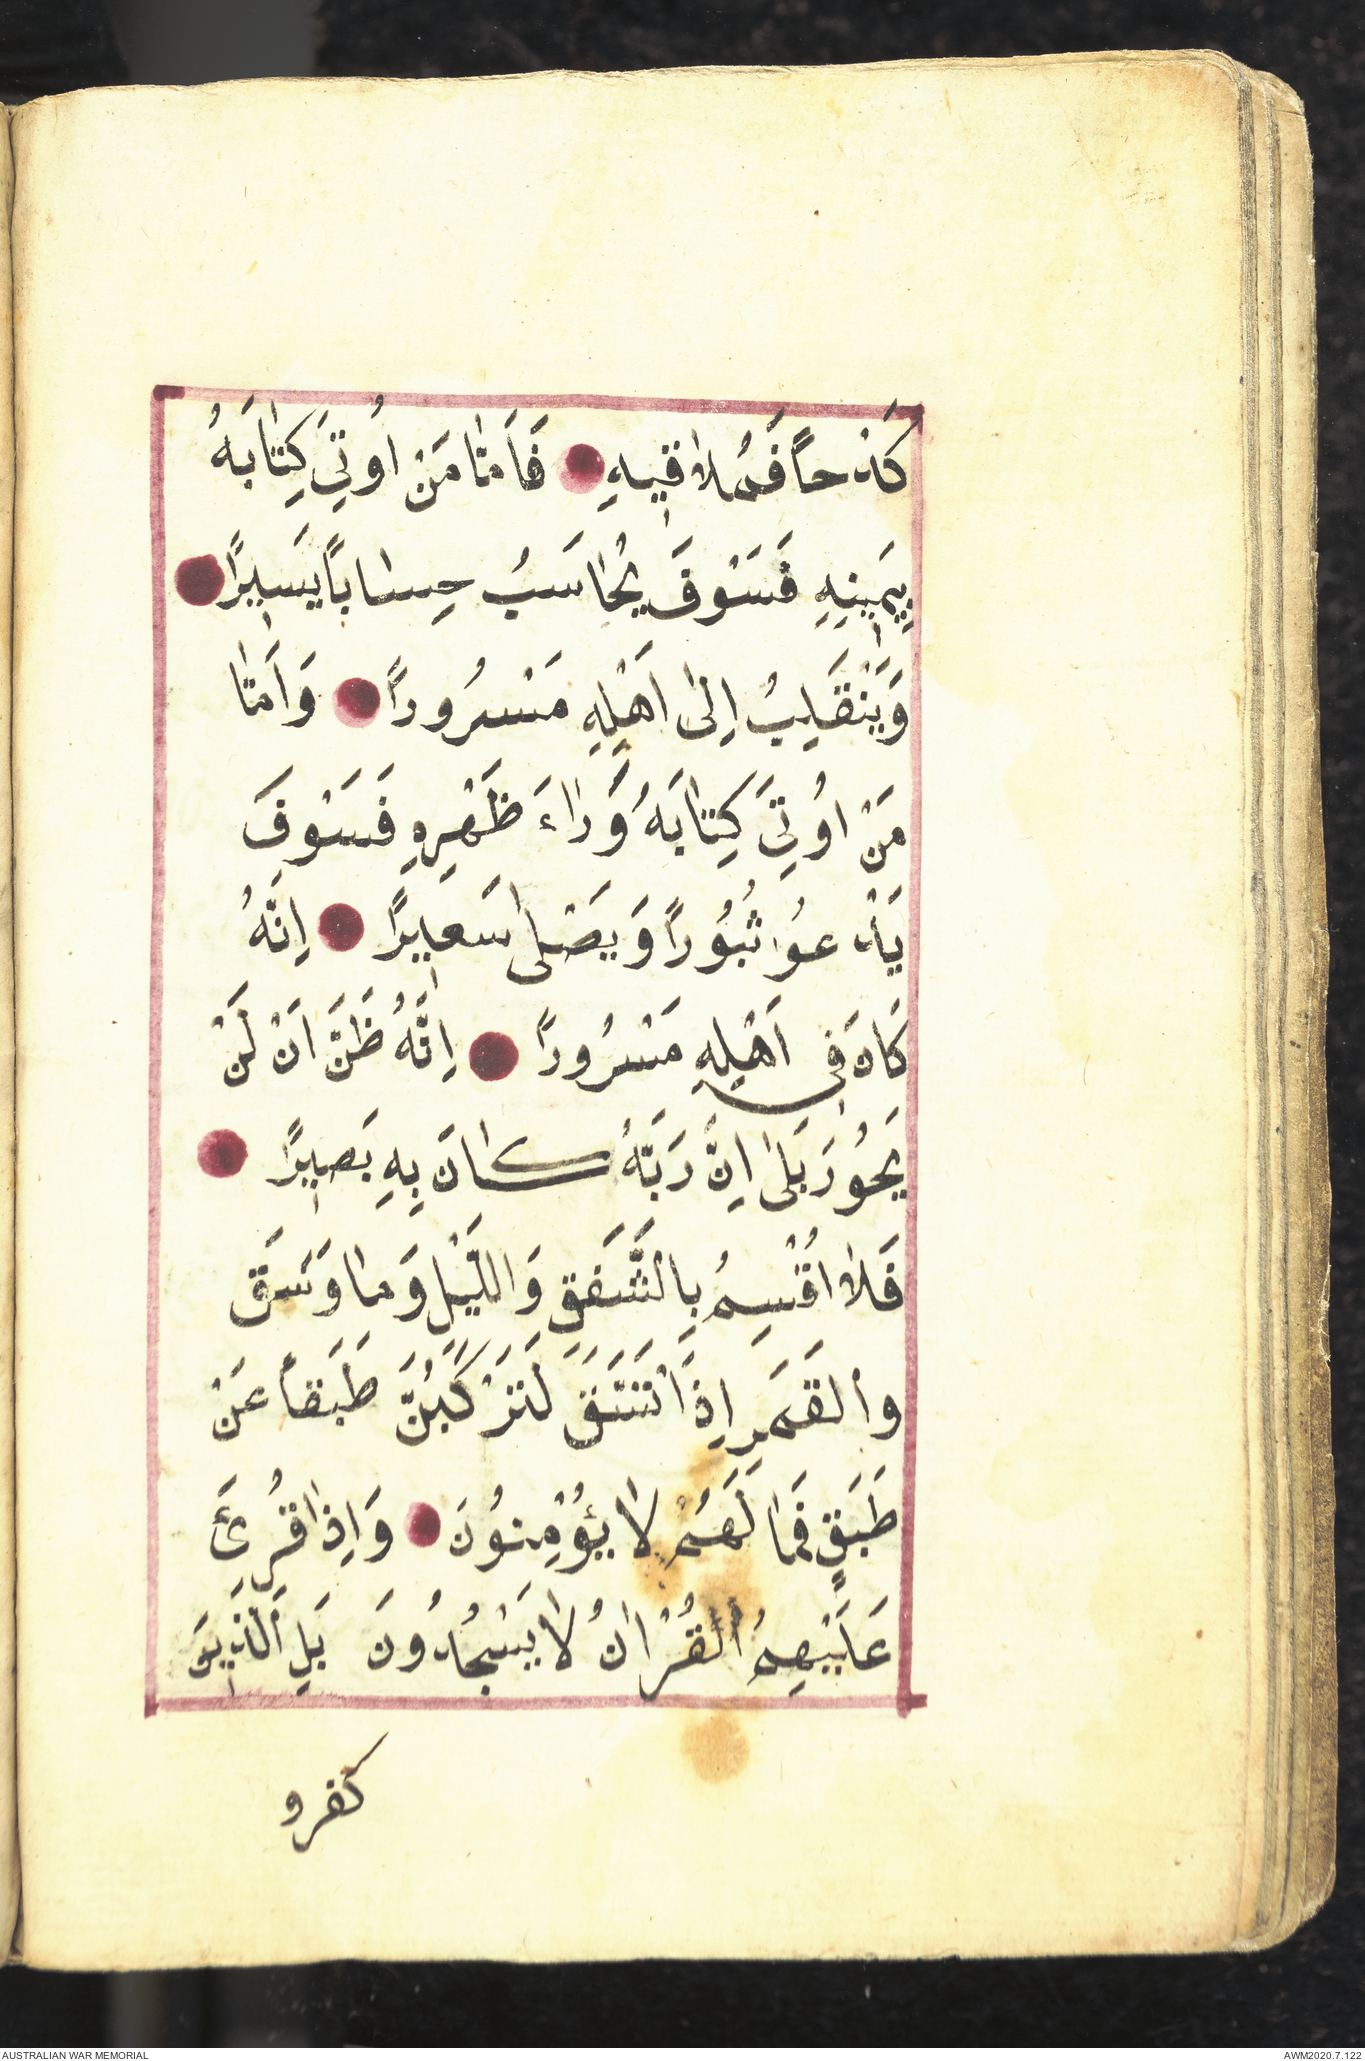 كَدْحاً فَمُلاٰقٖيهِ فَاَمّٰا مَنْ اُوتِيَ كِتٰابَهُ
بِيَمٖينِهِ فَسَوْفَ يُحٰاسَبُ حِسٰاباً يَسٖيرًا
وَيَنْقَلِبُ اِلىٰ اَهْلِهِ مَسْرُورًا وَاَمّٰا
مَنْ اُوتِيَ كِتٰابَهُ وَرٰاءَ ظَهْرِهِ فَسَوْفَ
يَدْعُو ثُبُورًا وَيَصْلىٰ سَعٖيرًا اِنَّهُ
كَانَ فٖى اَهْلِهِ مَسْرُورًا اِنَّهُ ظَنَّ اَنْ لَنْ
يَحُورَ بَلىٰ اِنَّ رَبَّهُ كٰانَ بِهِ بَصٖيرًا
فَلاٰ اُقْسِمُ بِالشَّفَقِ وَاللَّيْلِ وَمٰا وَسَقَ
والقَمَرِ اِذَا اتَّسَقَ لَتَرْكَبُنَّ طَبَقاً عَنْ
طَبَقٍ فَمٰا لَهُمْ لاٰ يُؤْمِنُونَ وَاِذٰا قُرِئَ
عَلَيْهِمُ القُرْاٰنُ لاٰ يَسْجُدُونَ بَلِ الَّذٖينَ
كفرو
AUSTRALIAN WAR MEMORIAL AWM2020.7.122